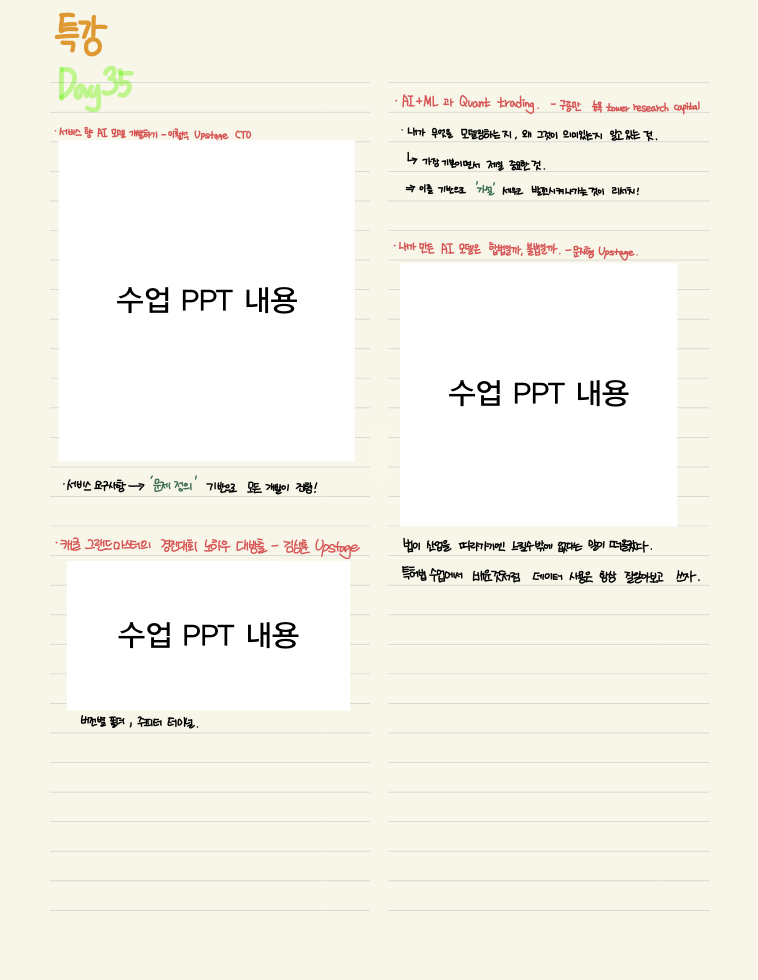 특강
Day 35
· 서비스 향 AI 모델 개발하기 - 이활석 Upstage CTO
수업 PPT 내용
· 서비스 요구사항 → '문제 정의' 기반으로 모든 개발이 진행!
· 캐글 그랜드마스터의 경진대회 노하우 대방출 - 김상훈 Upstage
수업 PPT 내용
버전별 폴더, 주피터 터미널.
· AI+ML 과 Quant trading. - 구종만 tower research capital
· 내가 무엇을 모델링하는지, 왜 그것이 의미있는지 알고있는 것.
↳ 가장 기본이면서 제일 중요한 것.
⇒ 이를 기반으로 '가설' 세우고 발전시켜나가는것이 리서치!
· 내가 만든 AI 모델은 합법일까, 불법일까. - 문지형 Upstage.
수업 PPT 내용
법이 산업을 따라가기엔 느릴수밖에 없다는 말이 떠올랐다.
특허법 수업에서 배운것처럼 데이터 사용은 항상 잘알아보고 쓰자.